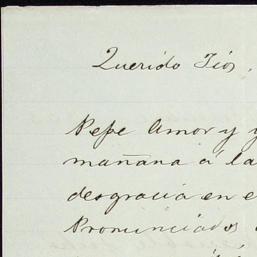 Querido Tíos,
Pepe Amor y
mañana á la
desgracia en e
Pronunciados